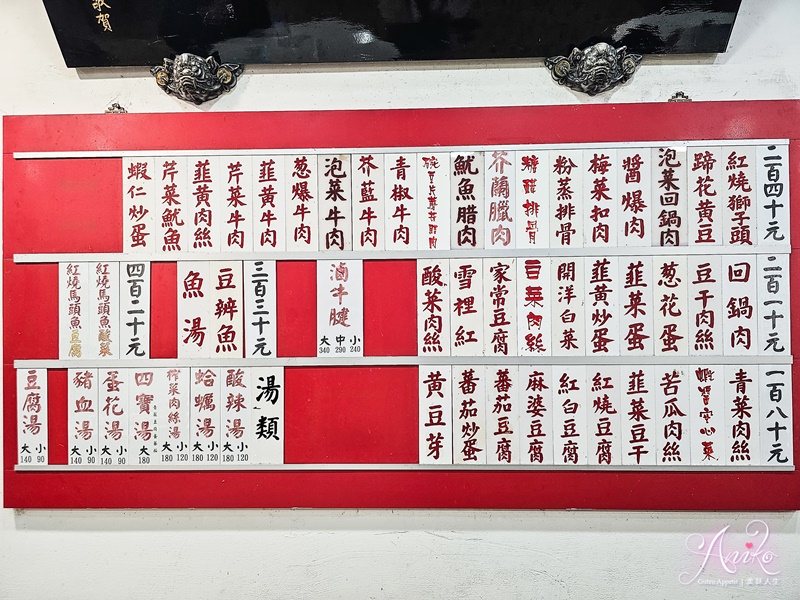 賀
二百四十元
紅燒獅子頭
蹄花黃豆
泡菜回鍋肉
醬爆肉
梅菜扣肉
粉蒸排骨
糖醋排骨
芥蘭臘肉
魷魚腊肉
青椒牛肉
芥藍牛肉
泡菜牛肉
葱爆牛肉
韮黃牛肉
芹菜牛肉
韮黃肉絲
芹菜魷魚
蝦仁炒蛋
二百一十元
回鍋肉
豆干肉絲
葱花蛋
韮菜蛋
韮黃炒蛋
開洋白菜
白菜肉絲
家常豆腐
雪裡紅
酸菜肉絲
滷牛腱
大 中 小
340 290 240
三百三十元
豆瓣魚
魚湯
四百二十元
紅燒馬頭魚酸菜
紅燒馬頭魚豆腐
一百八十元
青菜肉絲
蝦醬空心菜
苦瓜肉絲
韮菜豆干
紅燒豆腐
紅白豆腐
麻婆豆腐
蕃茄豆腐
蕃茄炒蛋
黃豆芽
湯類
酸辣湯
大 小
180 120
蛤蠣湯
大 小
180 120
榨菜肉絲湯
大 小
180 120
四寶湯
大
180
蛋花湯
大 小
140 90
豬血湯
大 小
140 90
豆腐湯
大 小
140 90
Aniko
Guten Appetit | 食踪人生